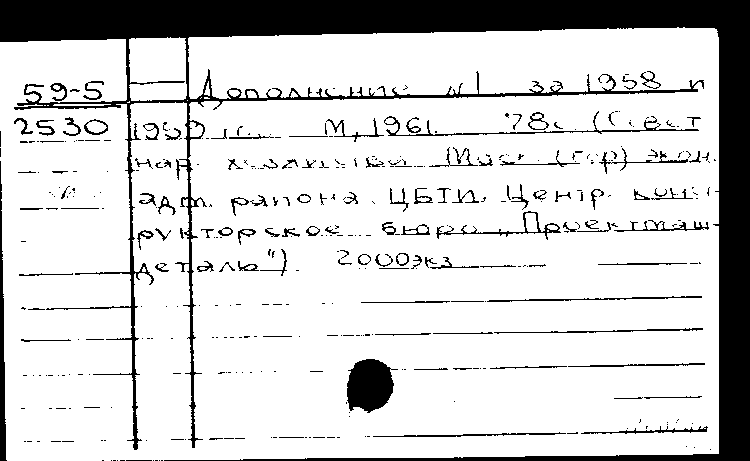 59-5 Дополнение №1 за 1958 и
2530 1959 гг. М, 1961. 78с (Совет
нар. хозяйства Моск (гор) экон.
адм. района. ЦБТИ. Центр. конст-
рукторское бюро „Проектмаш-
деталь"). 2000экз